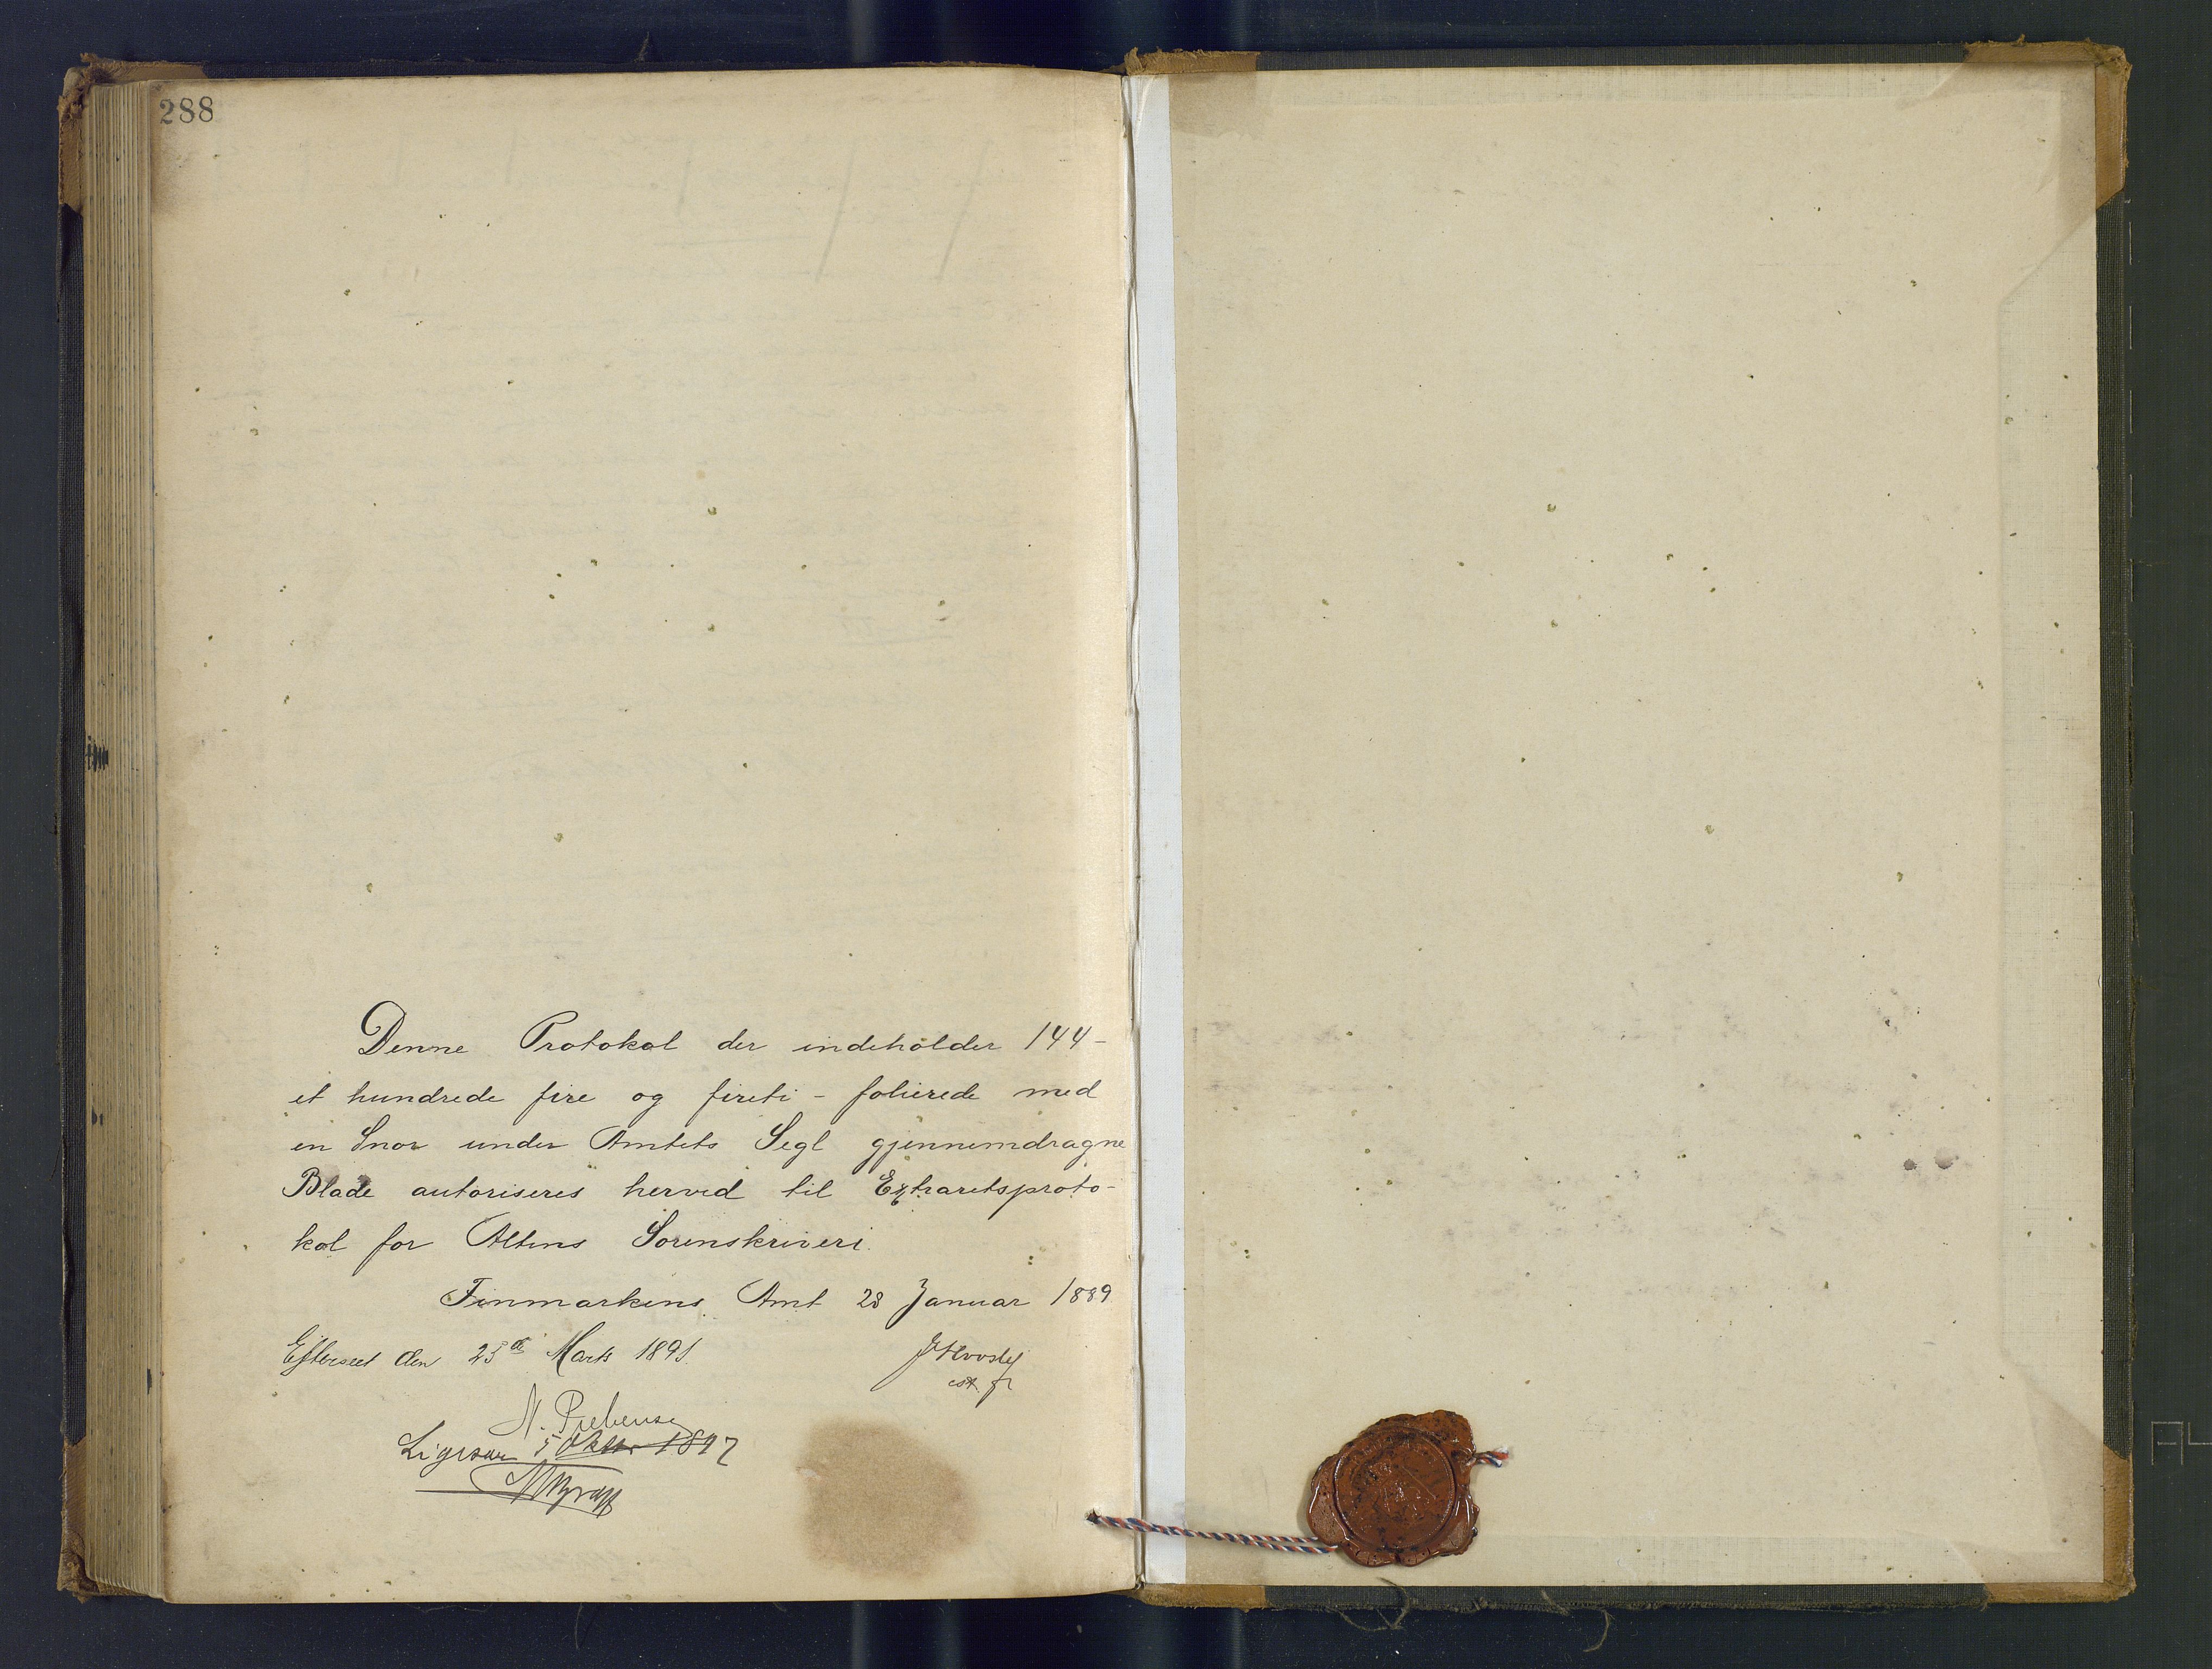 288
Denne Protokol der indeholder 144-
et hundrede fire og fireti - folierede med
en Snor under Amtets Segl gjennemdragne
Blade autoriseres herved til Extraretsproto-
kol for Altens Sorenskriveri.
Finmarkens Amt 28 Januar 1889
Efterseet den 23de Marts 1891.
cst. f.
N. Prebensen
Ligesaa 5 Oktbr 1897